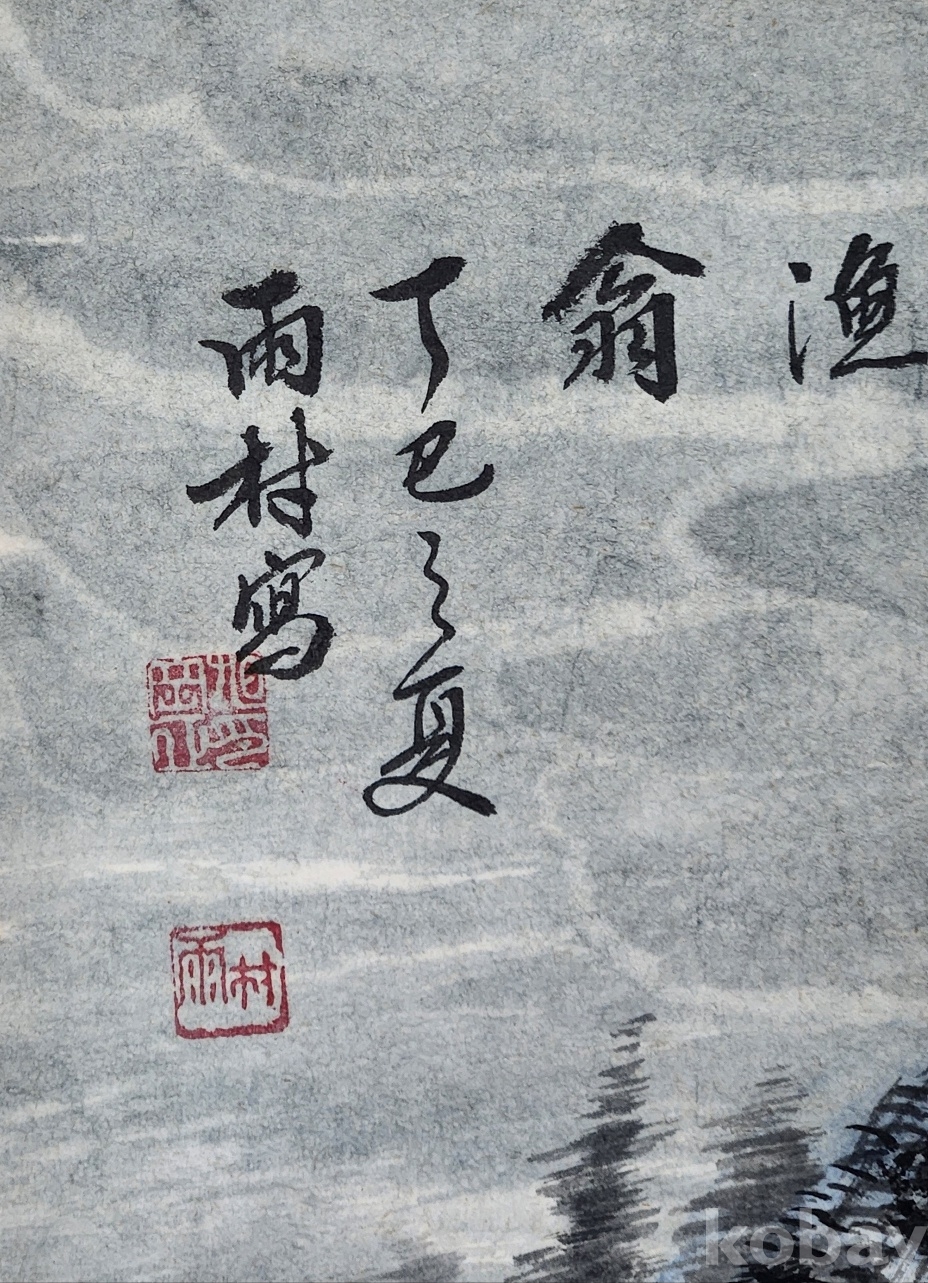 漁翁
丁巳之夏
雨村寫
雨村
kobay